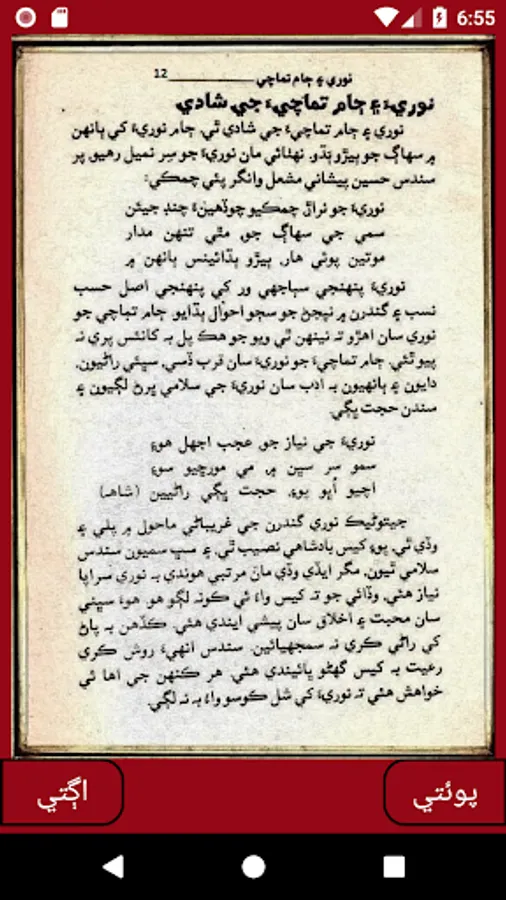 6:55
نوري ۽ ڄام تماچي ــــــــــــــ 12
نوريءَ ۽ ڄام تماچيءَ جي شادي
نوري ۽ ڄام تماچيءَ جي شادي ٿي. ڄام نوريءَ کي ٻانهن
۾ سهاڳ جو ٻيڙو ٻڌو. نهٺائي مان نوريءَ جو سِر نميل رهيو پر
سندس حسين پيشاني مشعل وانگر پئي چمڪي:
نوريءَ جو نراڙ چمڪيو چوڏهينءَ چنڊ جيئن
سمي جي سهاڳ جو، مٿي تنهن مدار
موتين پوئي هار، ٻيڙو ٻڌائينس ٻانهن ۾
نوريءَ پنهنجي سٻاجهي ور کي پنهنجي اصل حسب
نسب ۽ گندرن ۾ نپجڻ جو سڄو احوال ٻڌايو. ڄام تماچي جو
نوري سان اهڙو تہ نينهن ٿي ويو جو هڪ پل بہ کانئس پري نہ
پيو ٿئي. ڄام تماچيءَ جو نوريءَ سان قرب ڏسي، سڀئي راڻيون،
دايون ۽ ٻانهيون بہ ادب سان نوريءَ جي سلامي ڀرڻ لڳيون ۽
سندن حجت ڀڳي.
نوريءَ جي نياز جو، عجب اجهل هوءِ
سمو سر سين ۾، مي مورڇيو سوءِ
اچيو اُڀو پوءِ، حجت ڀڳي راڻيين (شاهہ)
جيتوڻيڪ نوري گندرن جي غريباڻي ماحول ۾ پلي ۽
وڏي ٿي، پوءِ کيس بادشاهي نصيب ٿي. ۽ سڀ سميون سندس
سلامي ٿيون، مگر ايڏي وڏي مان مرتبي هوندي بہ نوري سراپا
نياز هئي. وڏائي جو تہ کيس واءُ ئي ڪونہ لڳو هو. هوءَ سڀني
سان محبت ۽ اخلاق سان پيشي ايندي هئي. ڪڏهن بہ پاڻ
کي راڻي ڪري نہ سمجهيائين. سندس انهيءَ روش ڪري
رعيت بہ کيس گهڻو ڀائيندي هئي. هر ڪنهن جي اها ئي
خواهش هئي تہ نوريءَ کي شل ڪوسو واءُ بہ نہ لڳي.
اڳتي
پوئتي